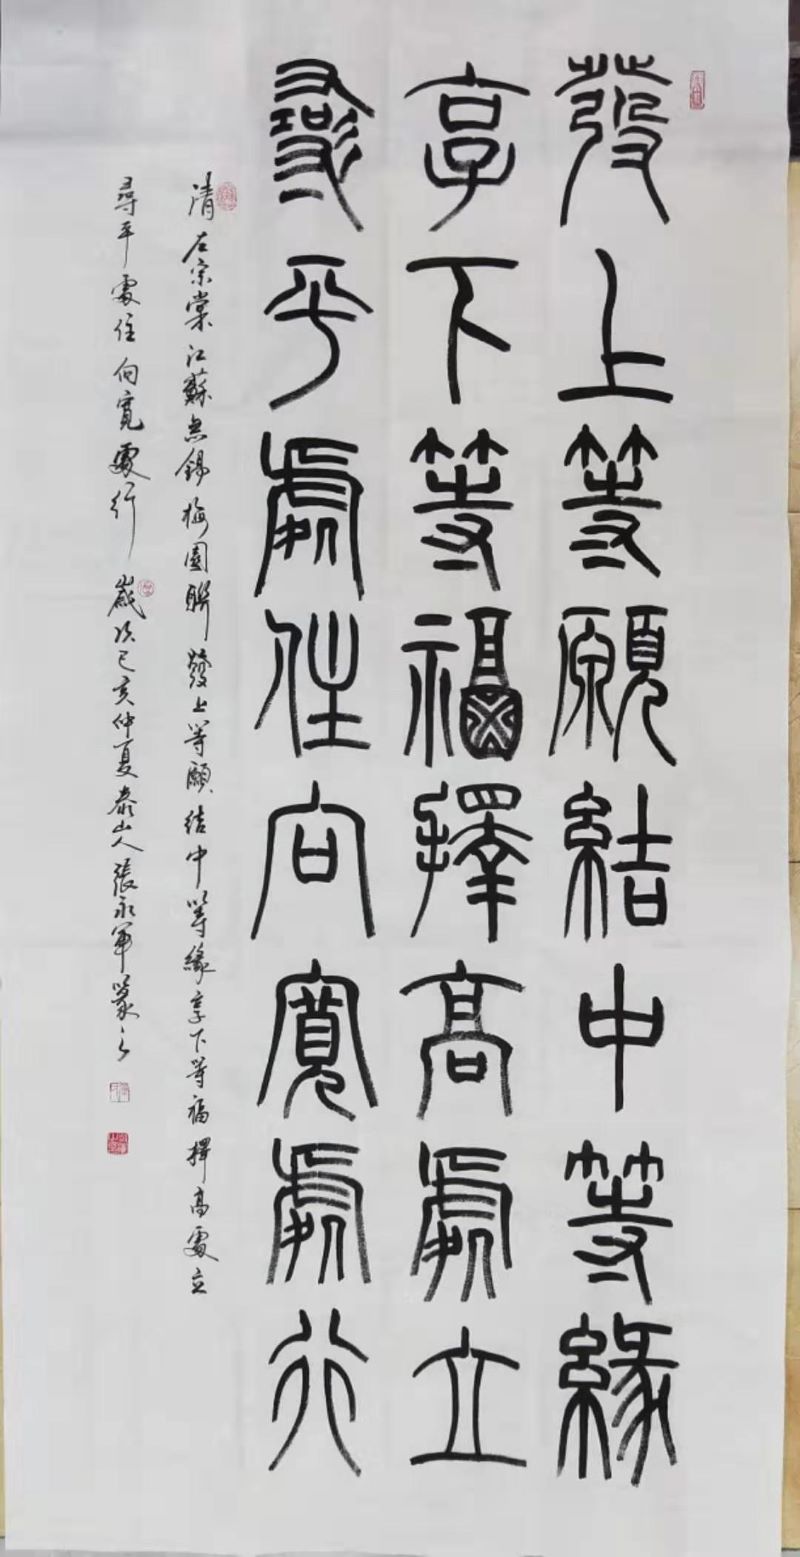 發上等願結中等緣
享下等福擇高處立
尋平處住向寬處行
清左宗棠江蘇無錫梅園聯發上等願結中等緣享下等福擇高處立
尋平處住向寬處行歲次己亥仲夏泰山人張永軍篆之